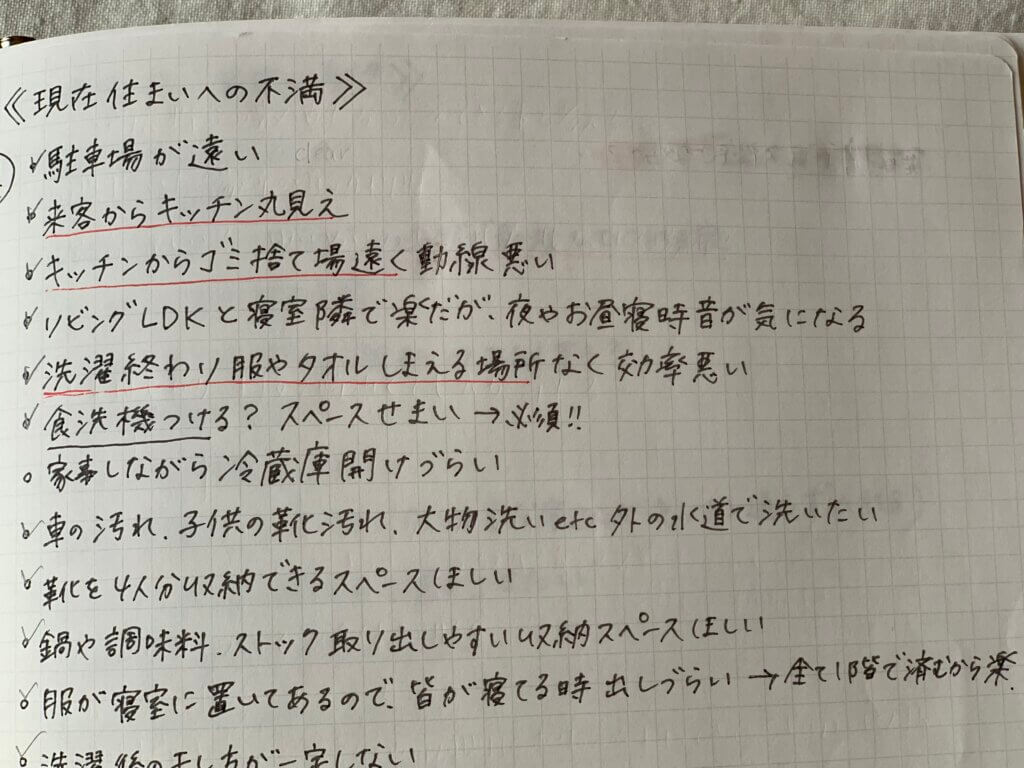 《現在住まいへの不満》
駐車場が遠い
来客からキッチン丸見え
キッチンからゴミ捨て場遠く動線悪い
リビングLDKと寝室隣で楽だが、夜やお昼寝時音が気になる
洗濯終わり服やタオルしまえる場所なく効率悪い
食洗機つける？スペースせまい→必須!!
家事しながら冷蔵庫開けづらい
車の汚れ、子供の靴汚れ、大物洗いetc外の水道で洗いたい
靴を4人分収納できるスペースほしい
鍋や調味料、ストック取り出しやすい収納スペースほしい
服が寝室に置いてあるので、皆が寝てる時出しづらい→全て1階で済むから楽、
洗濯後の干し方が一定しない